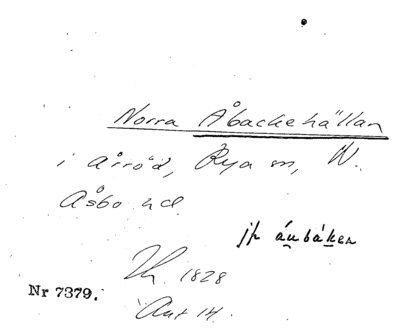 Norra Åbackehällan
i Årröd, Rya sn, N.
Åsbo hd.
jfr åubåken
1828
Nr 7379.
Akt 14.